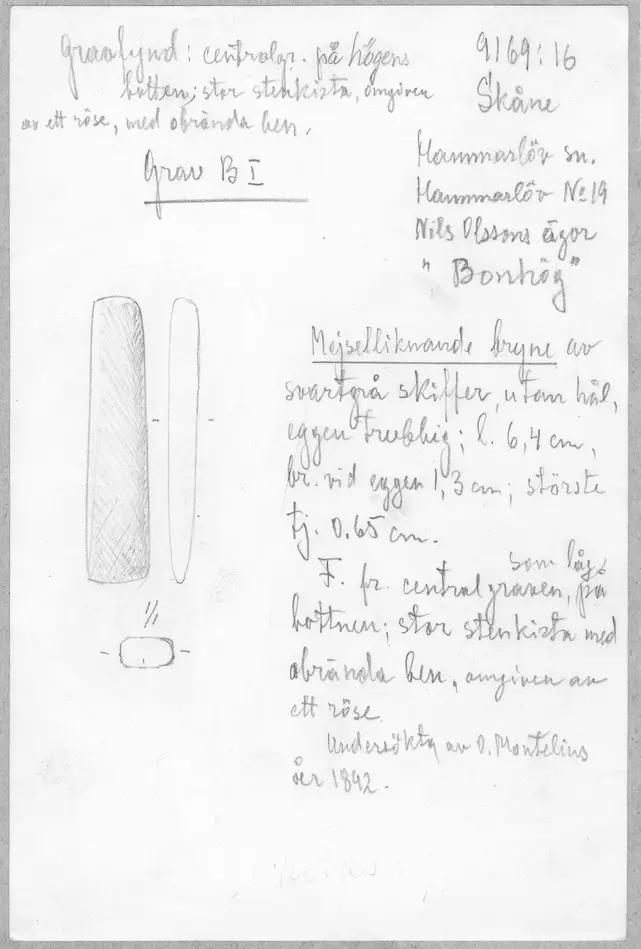 Gravfynd: centralgr. på högens
botten; stor stenkista, omgiven
av ett röse, med obrända ben.
Grav B I
9169:16
Skåne
Hammarlöv sn.
Hammarlöv No 19
Nils Olssons ägor
"Bonhög"
Mejselliknande bryne av
svartgrå skiffer, utan hål,
eggen trubbig; l. 6,4 cm,
br. vid eggen 1,3 cm; störste
tj. 0.65 cm.
F. fr. centralgraven, som låg på
bottnen; stor stenkista med
obrända ben, omgiven av
ett röse.
Undersökta av O. Montelius
år 1892.
1/1